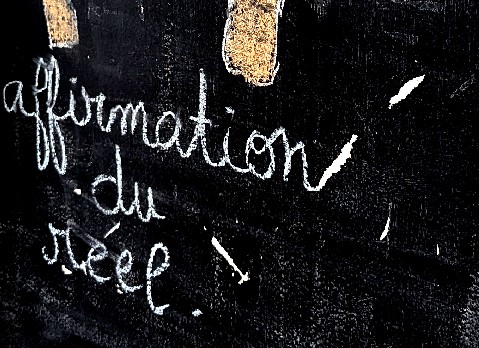 affirmation
du
réel.